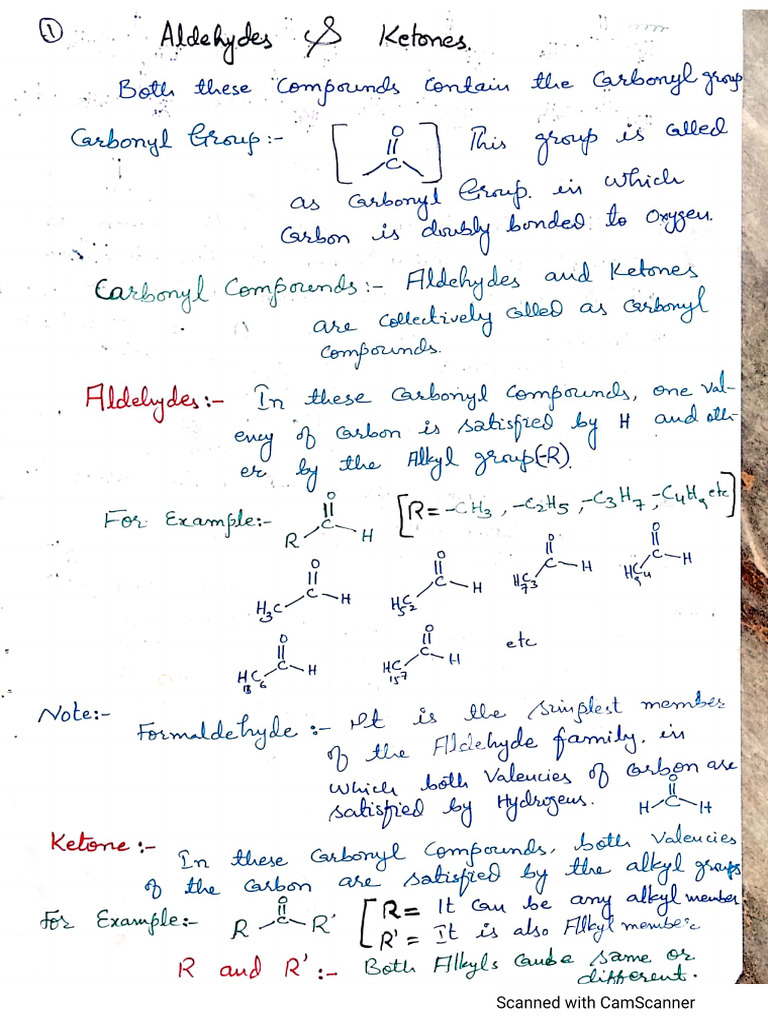 ① Aldehydes & Ketones.
Both these Compounds Contain the Carbonyl group
Carbonyl Group:- [ O || C ] This group is called
as Carbonyl Group. in which
Carbon is doubly bonded to Oxygen.
Carbonyl Compounds:- Aldehydes and Ketones
are Collectively Called as Carbonyl
Compounds.
Aldehydes:- In these Carbonyl Compounds, one val-
ency of Carbon is satisfied by H and oth-
er by the Alkyl group(-R).
For Example:- R-C(=O)-H [R= -CH3, -C2H5, -C3H7, -C4H9 etc]
H3C-C(=O)-H H5C2-C(=O)-H H7C3-C(=O)-H H9C4-C(=O)-H
H13C6-C(=O)-H H15C7-C(=O)-H etc
Note:- Formaldehyde:- It is the Simplest member
of the Aldehyde family, in
which both Valencies of Carbon are
satisfied by Hydrogens. H-C(=O)-H
Ketone:- In these Carbonyl Compounds, both Valencies
of the Carbon are satisfied by the alkyl groups
For Example:- R-C(=O)-R' [R= It Can be any alkyl member
R'= It is also Alkyl member.
R and R':- Both Alkyls Can be Same or
different.
Scanned with CamScanner